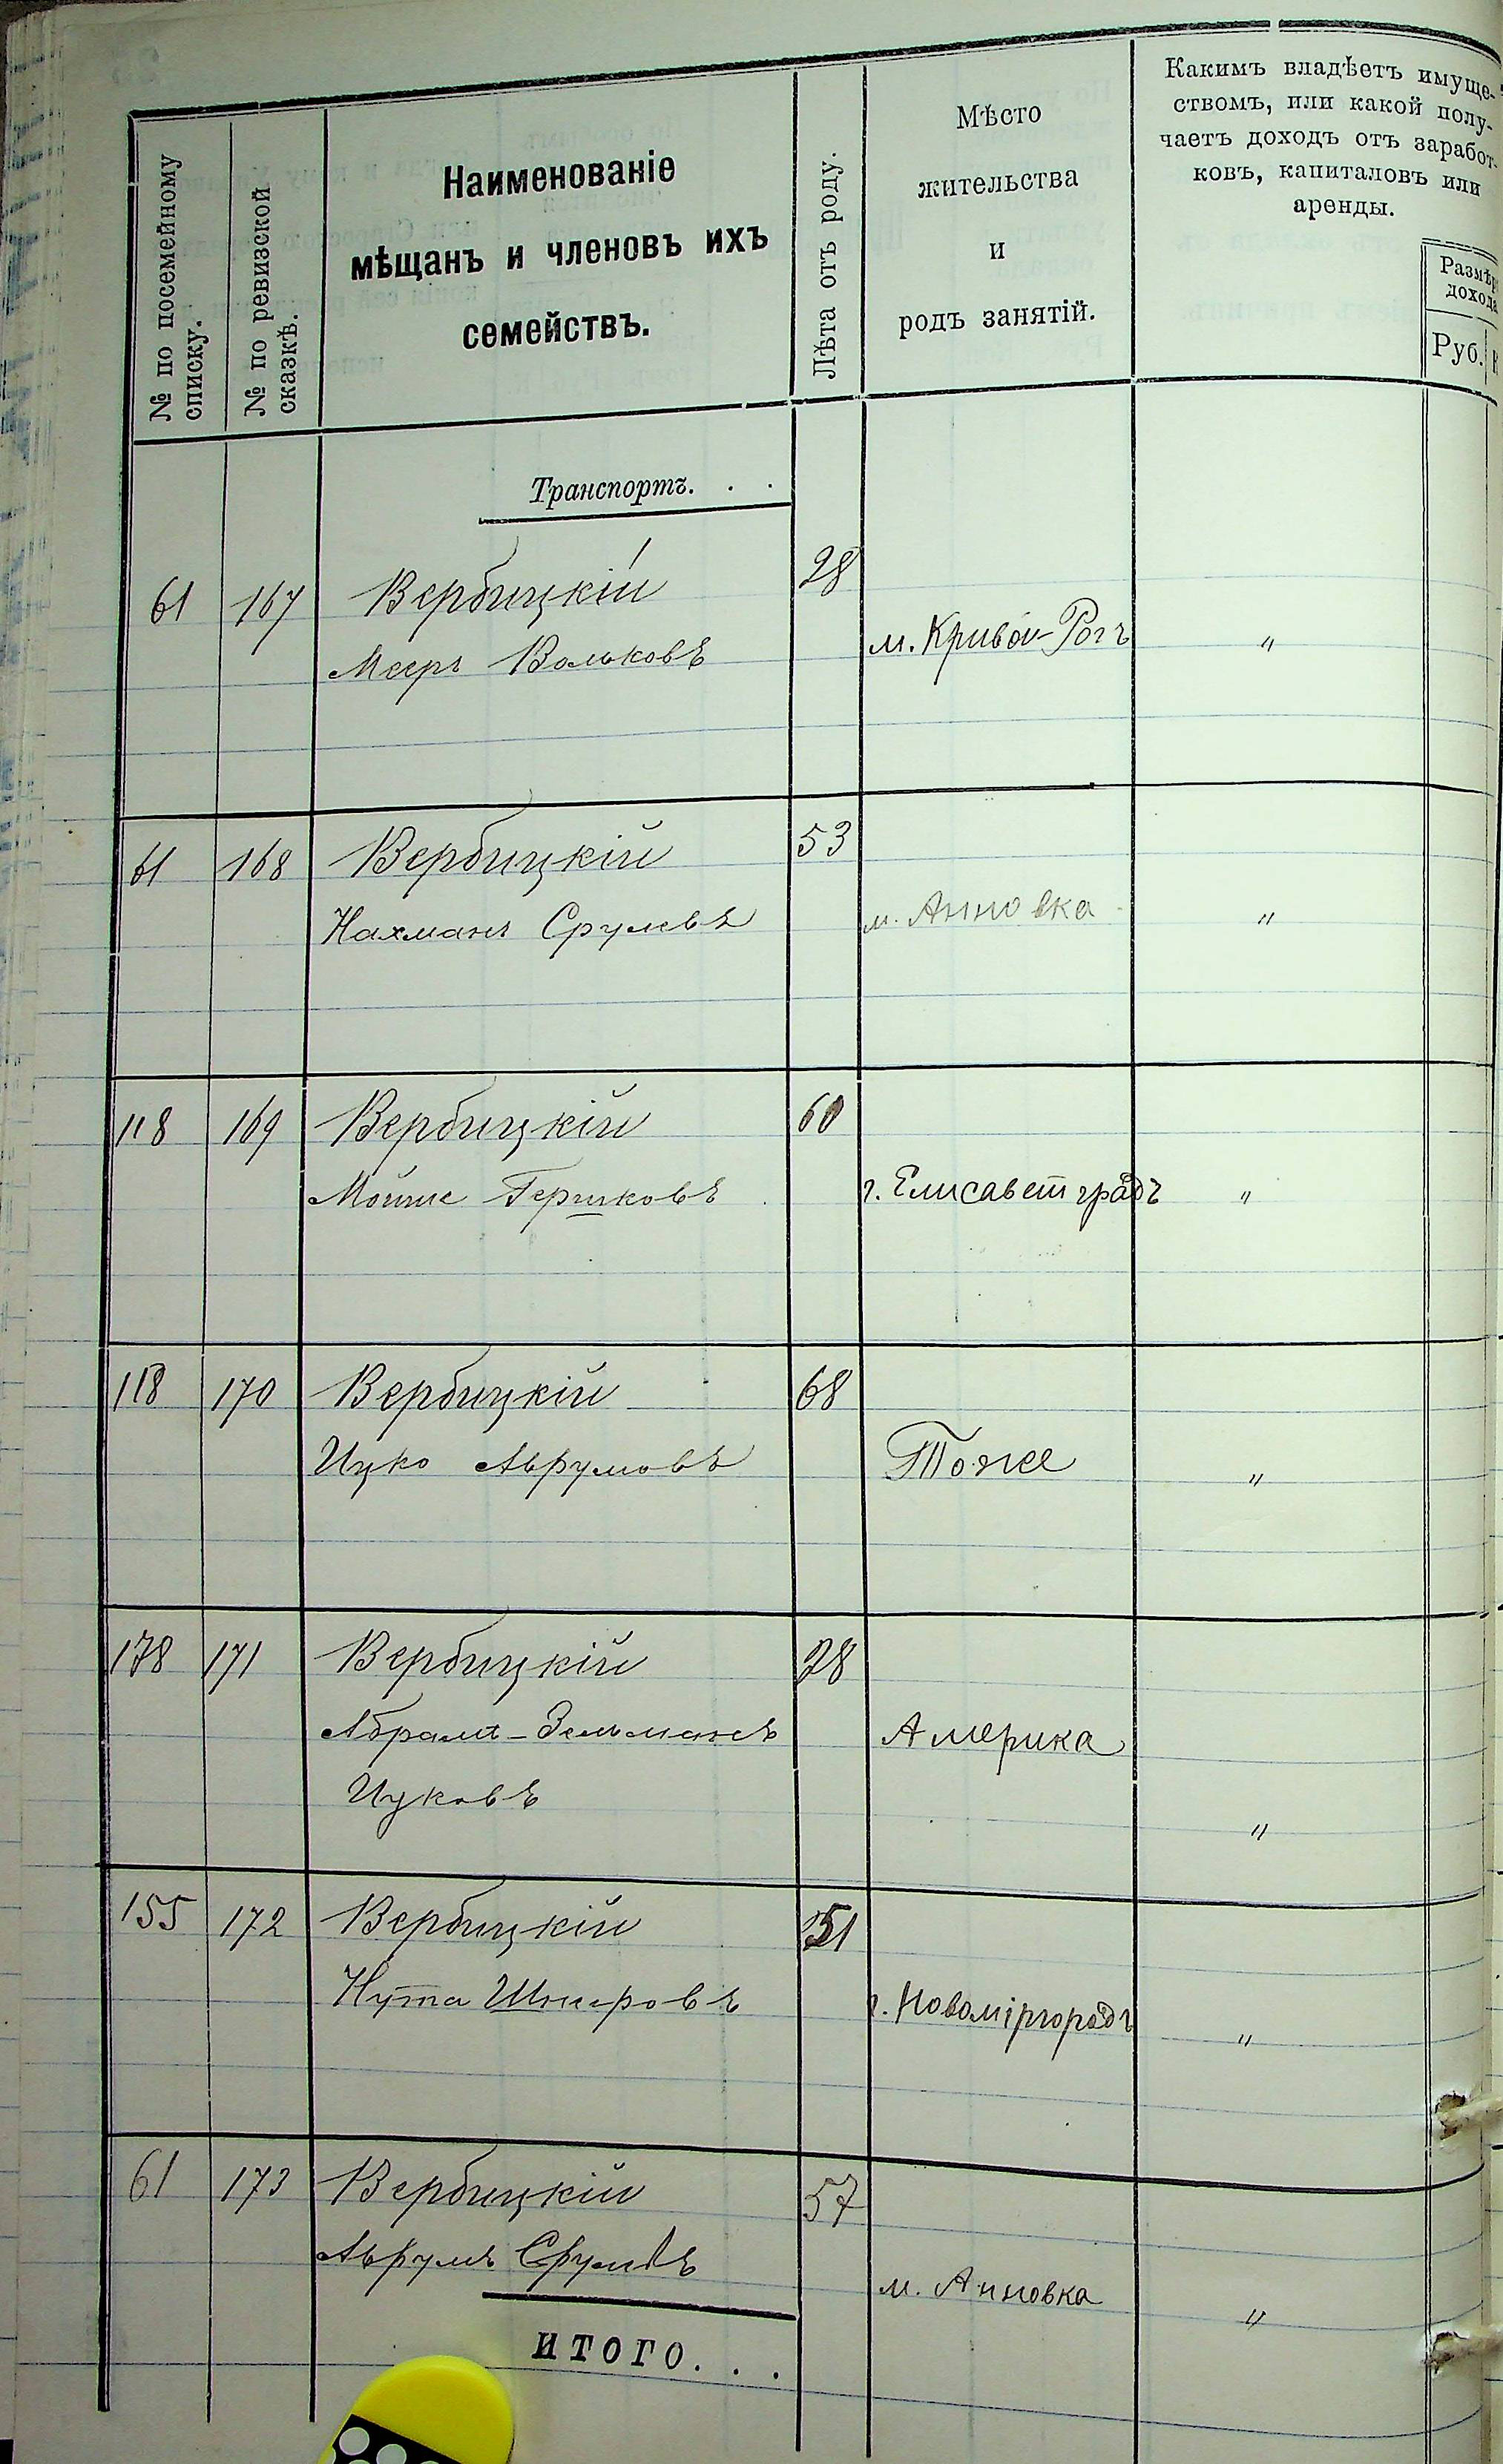 № по посемейному
списку.
№ по ревизской
сказкѣ.
Наименованіе
мѣщанъ и членовъ ихъ
семействъ.
Лѣта отъ роду.
Мѣсто
жительства
и
родъ занятій.
Какимъ владѣетъ имуще-
ствомъ, или какой полу-
чаетъ доходъ отъ заработ-
ковъ, капиталовъ или
аренды.
Руб.
Транспортъ. . .
61 167 Вербицкій 28
Мееръ Вольковъ м. Кривой-Рогъ "
61 168 Вербицкій 53
Нахманъ Срулевъ м. Анновка "
118 169 Вербицкій 60
Мойше Гершковъ г. Елисаветградъ "
118 170 Вербицкій 68
Ицко Аврумовъ Тоже "
178 171 Вербицкій 28
Абрамъ-Зельманъ Америка
Ицковъ "
155 172 Вербицкій 51
Нута Шнееровъ г. Новоміргородъ "
61 173 Вербицкій 57
Аврумъ Срулевъ м. Анновка "
ИТОГО. . .